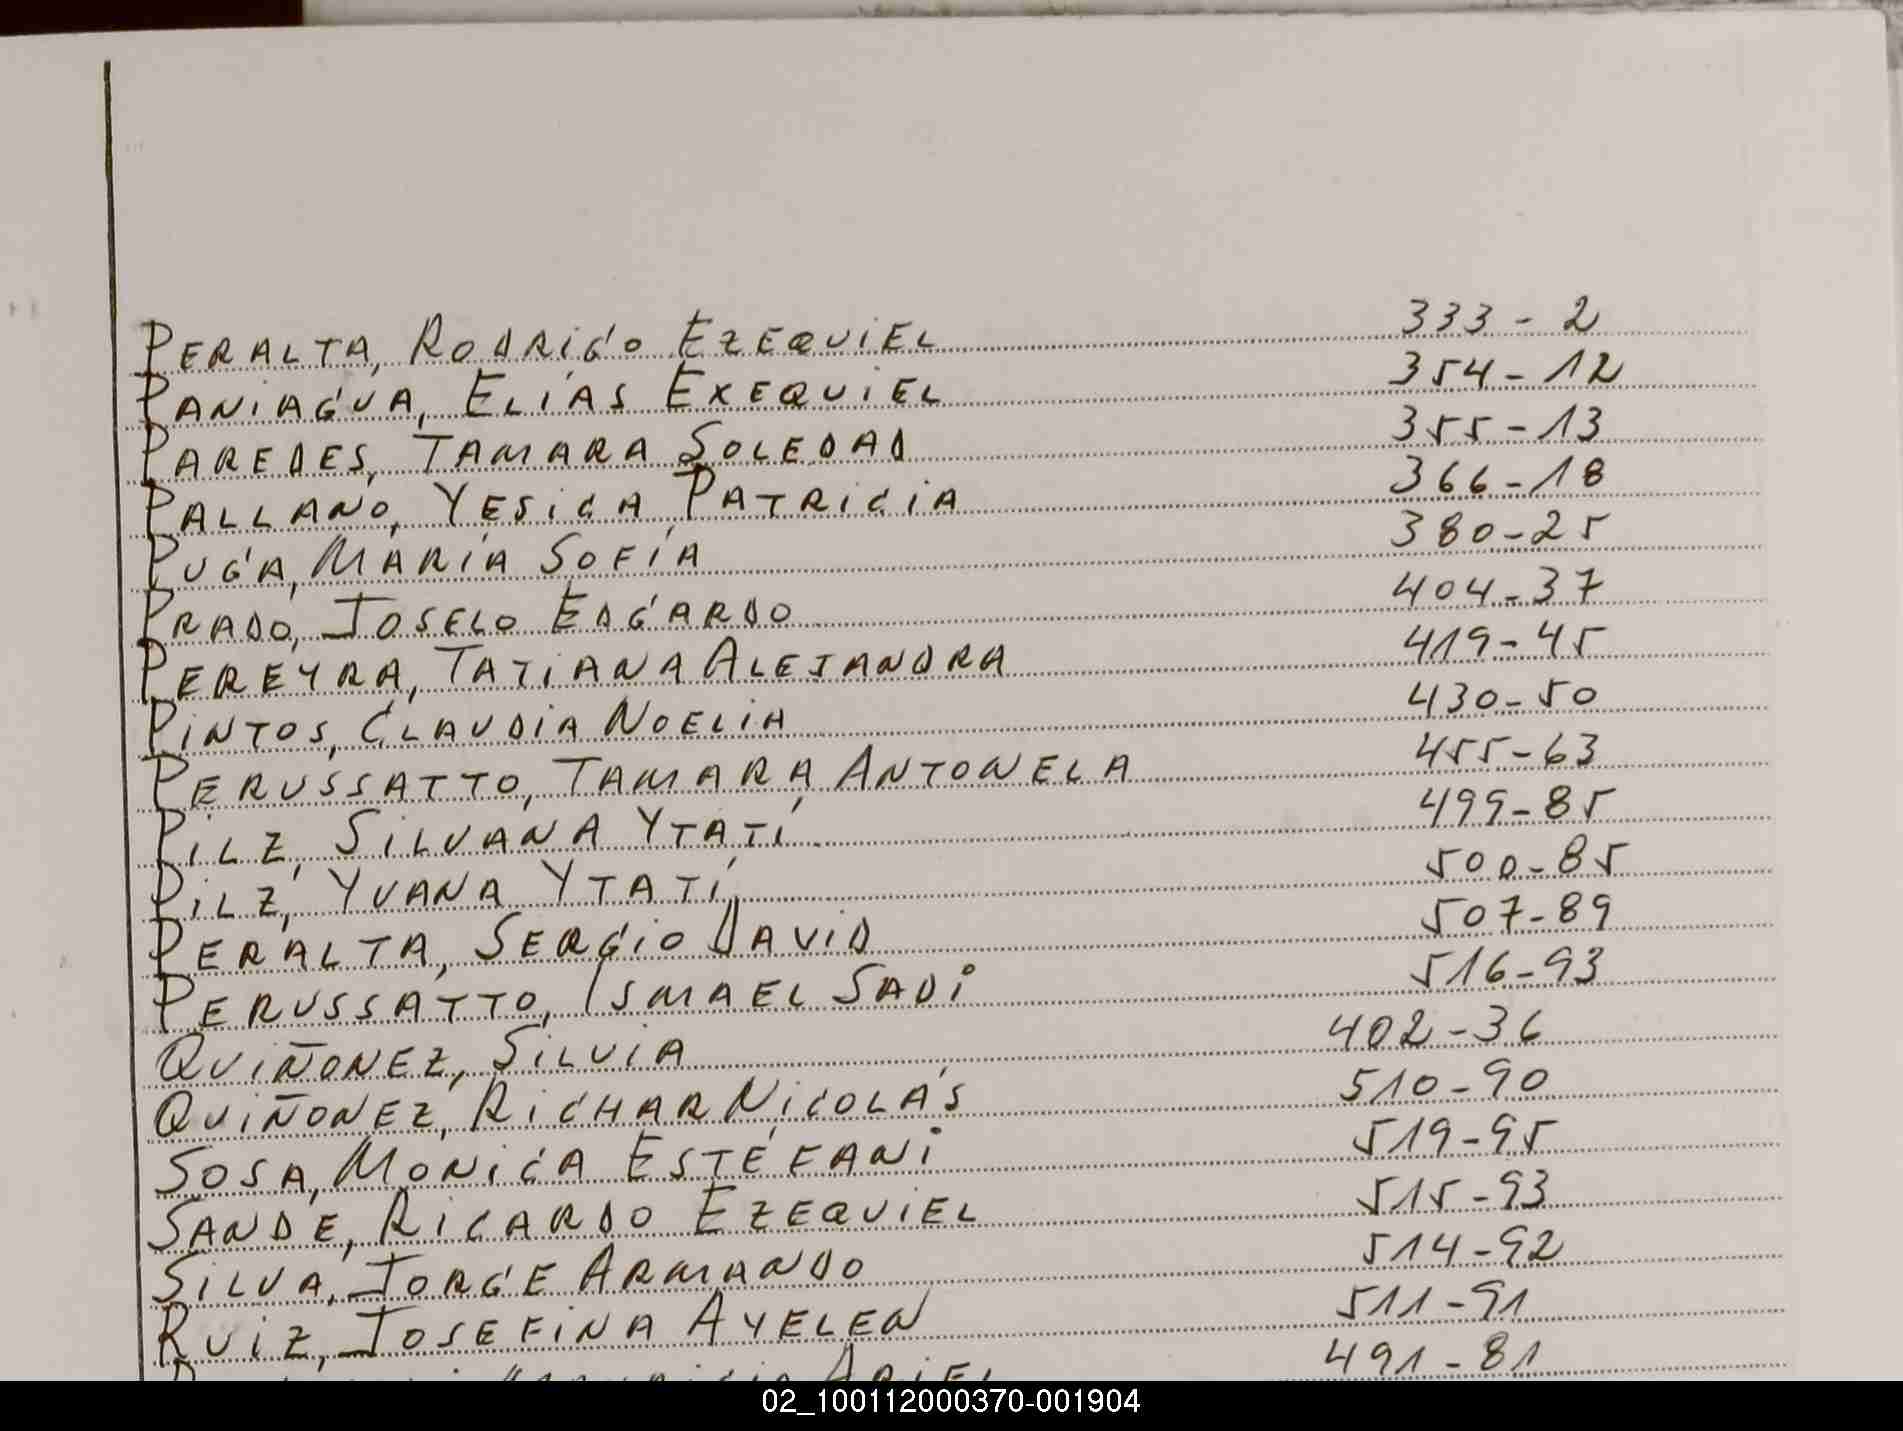 PERALTA, RODRIGO EZEQUIEL 333-2
PANIAGUA, ELIAS EXEQUIEL 354-12
PAREDES, TAMARA SOLEDAD 355-13
PALLANO, YESICA PATRICIA 366-18
PUGA, MARÍA SOFÍA 380-25
PRADO, JOSELO EDGARDO 404-37
PEREYRA, TATIANA ALEJANDRA 419-45
PINTOS, CLAUDIA NOELIA 430-50
PERUSSATTO, TAMARA ANTONELA 455-63
PILZ, SILVANA YTATÍ 499-85
PILZ, YVANA YTATÍ 500-85
PERALTA, SERGIO DAVID 507-89
PERUSSATTO, ISMAEL SADI 516-93
QUIÑONEZ, SILVIA 402-36
QUIÑONEZ, RICHAR NICOLÁS 510-90
SOSA, MONICA ESTEFANI 519-95
SANDE, RICARDO EZEQUIEL 515-93
SILVA, JORGE ARMANDO 514-92
RUIZ, JOSEFINA AYELEN 511-91
ARIEL 491-81
02_100112000370-001904